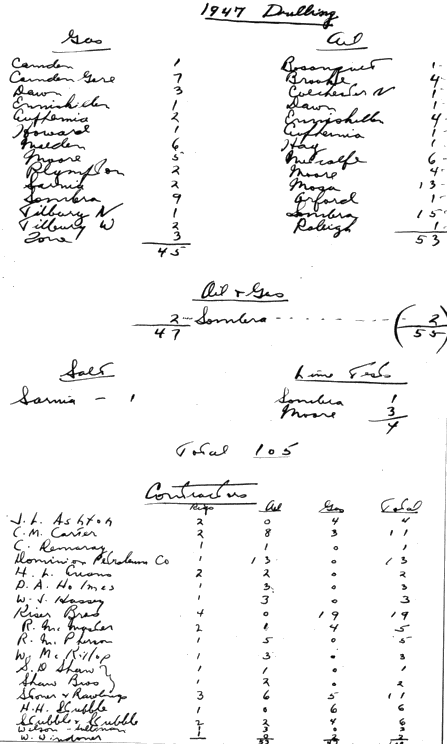 1947 Drilling
Gas
Camden 1
Camden Gore 7
Dawn 3
Enniskillen 1
Euphemia 2
Howard 1
Malden 6
Moore 5
Plympton 2
Sarnia 2
Sombra 9
Tilbury N 1
Tilbury W 2
Zone 3
45
Oil
Bosanquet 1
Brooke 4
Colchester N 1
Dawn 1
Enniskillen 4
Euphemia 1
Hay 1
Metcalfe 6
Moore 4
Mosa 13
Orford 1
Sombra 15
Raleigh 1
53
Oil & Gas
2 Sombra (2)
47 55
Salt
Sarnia - 1
Lime Tests
Sombra 1
Moore 3
4
Total 105
Contractors
Rigs Oil Gas Total
J. L. Ashton 2 0 4 4
C. M. Carter 2 8 3 11
C. 1 1 0 1
Dominion Petroleum Co 1 13 0 13
H. L. Evans 2 2 0 2
D. A. Holmes 1 3 0 3
W. J. 1 3 0 3
Kiser Bros 4 0 19 19
R. McMaster 2 1 4 5
R. McPherson 1 5 0 5
W. McKillop 1 3 0 3
S. D Shaw 1 1 0 1
Shaw Bros 1 2 0 2
Stover & Rawlings 3 6 5 11
H. H. Scubble 1 0 6 6
Scubble & Scubble 2 2 4 6
Wilson - 1 3 0 3
W. Windover